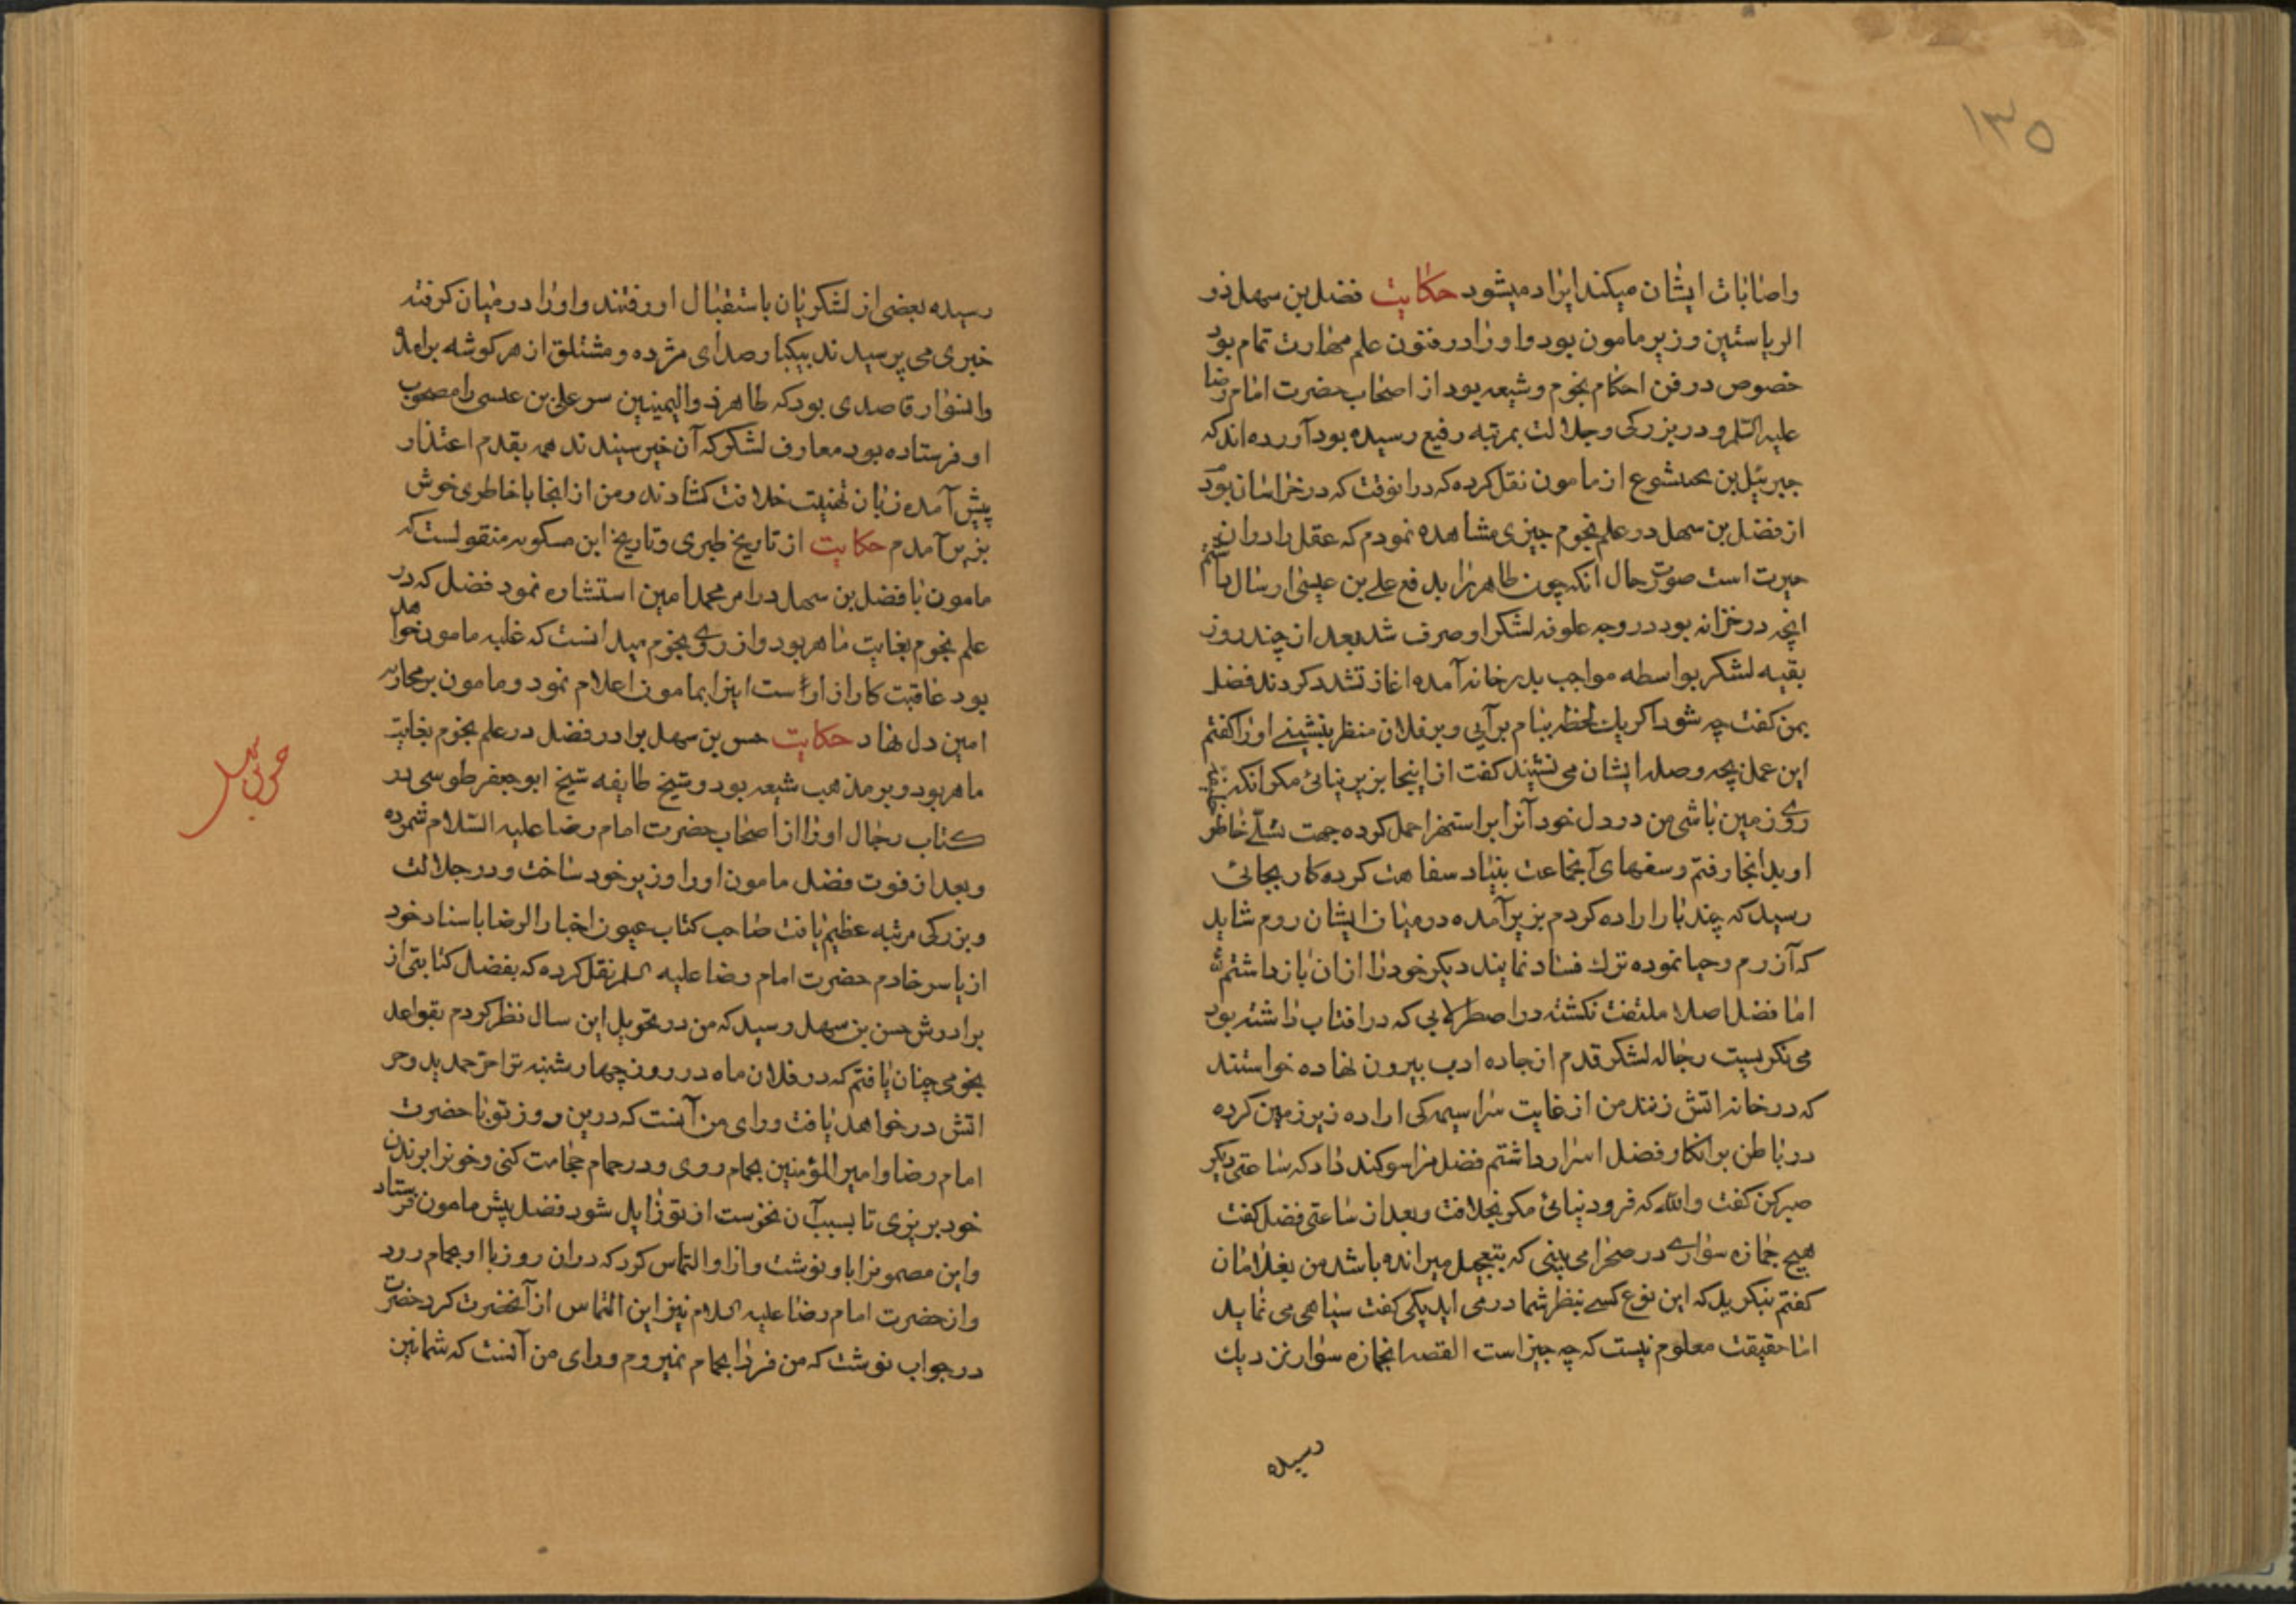 ١٣٥
واصابات ایشان میکند ایراد میشود حکایت فضل بن سهل ذو
الریاستین وزیر مامون بود و او را در فنون علم مهارت تمام بود
خصوص در فن احکام نجوم و شیعه بود از اصحاب حضرت امام رضا
علیه السلم و در بزرکی و جلالت بمرتبه رفیع رسیده بود آورده اند که
جبرئیل بن بختیشوع از مامون نقل کرده که در انوقت که در خراسان بود
از فضل بن سهل در علم نجوم چیزی مشاهده نمودم که عقل را در ان
حیرت است صورت حال انکه چون طاهر را بدفع علی بن عیسی ارسال داشتم
انچه در خزانه بود در وجه علوفه لشکر او صرف شد بعد از چند روز
بقیه لشکر بواسطه مواجب بدر خانه آمده اغاز تشدد کردند فضل
بمن کفت چه شود اکر یك لحظه ببام برآیی و بر فلان منظر بنشینے او را کفتم
این عمل بچه وصله ایشان می نشیند کفت از اینجا بزیر نیائی مکر انکه خلیفه
روے زمین باشی من در دل خود آنرا بر استهزا حمل کرده جهت تسلّے خاطر
او بدانجا رفتم و سفهای آنجماعت بنیاد سفاهت کرده کار بجائی
رسید که چند بار اراده کردم بزیر آمده در میان ایشان روم شاید
که آزرم و حیا نموده ترك فساد نمایند دیکر خود را از ان باز داشتم
اما فضل اصلا ملتفت نکشته در اصطرلابی که در افتاب داشته بود
می نکریست رجاله لشکر قدم از جاده ادب بیرون نهاده خواستند
که در خانه اتش زنند من از غایت سراسیمه کی اراده زیر زمین کرده
در باطن بر انکار فضل اسرار داشتم فضل مرا سوکند داد که ساعتی دیکر
صبر کن کفت والله که فرود نیائی مکر بخلافت و بعد از ساعتی فضل کفت
هیچ جمازه سوارے در صحرا می بینی که بتعجیل میرانده باشد من بغلامان
کفتم بنکرید که این نوع کسے بنظر شما در می اید یکی کفت سیاهی می نماید
اما حقیقت معلوم نیست که چه چیز است القصه انجمازه سوار نزدیك
رسیده
رسیده بعضی از لشکریان باستقبال او رفتند و او را در میان کرفته
خبری می پرسیدند بیکبار صدای مژده و مشتلق از هر کوشه برامد
و انسوار قاصدی بود که طاهر ذو الیمینین سر علی بن عیسی را مصحوب
او فرستاده بود معارف لشکر که آن خبر شنیدند همه بقدم اعتذار
پیش آمده زبان تهنیت خلافت کشادند و من از انجا با خاطری خوش
بزیر آمدم حکایت از تاریخ طبری و تاریخ ابن مسکویه منقولست که
مامون با فضل بن سهل در امر محمد امین استشاره نمود فضل که در
علم نجوم بغایت ماهر بود و از روے نجوم میدانست که غلبه مامون را خواهد
بود عاقبت کار از اراست اینرا بمامون اعلام نمود و مامون بر محاربه
امین دل نهاد حکایت حسن بن سهل برادر فضل در علم نجوم بغایت
ماهر بود و بر مذهب شیعه بود و شیخ طایفه شیخ ابو جعفر طوسی در
کتاب رجال او را از اصحاب حضرت امام رضا علیه السّلام شمرده
و بعد از فوت فضل مامون او را وزیر خود ساخت و در جلالت
و بزرکی مرتبه عظیم یافت صاحب کتاب عیون اخبار الرضا باسناد خود
از یاسر خادم حضرت امام رضا علیه السلم نقل کرده که بفضل کتابتی از
برادرش حسن بن سهل رسید که من در تحویل این سال نظر کردم بقواعد
نجومی چنان یافتم که در فلان ماه در روز چهارشنبه ترا حرّ حدید و حر
اتش در خواهد یافت و رای من آنست که درین روز تو با حضرت
امام رضا و امیر المؤمنین بحمام روی و در حمام حجامت کنی و خونرا بر بدن
خود بریزی تا بسبب آن نحوست از تو زایل شود فضل پیش مامون فرستاد
و این مضمونرا باو نوشت و از او التماس کرد که در ان روز با او بحمام رود
و از حضرت امام رضا علیه السلام نیز این التماس از آنحضرت کرد حضرت
در جواب نوشت که من فردا بحمام نمیروم و رای من آنست که شما نیز
حسن بن سهل